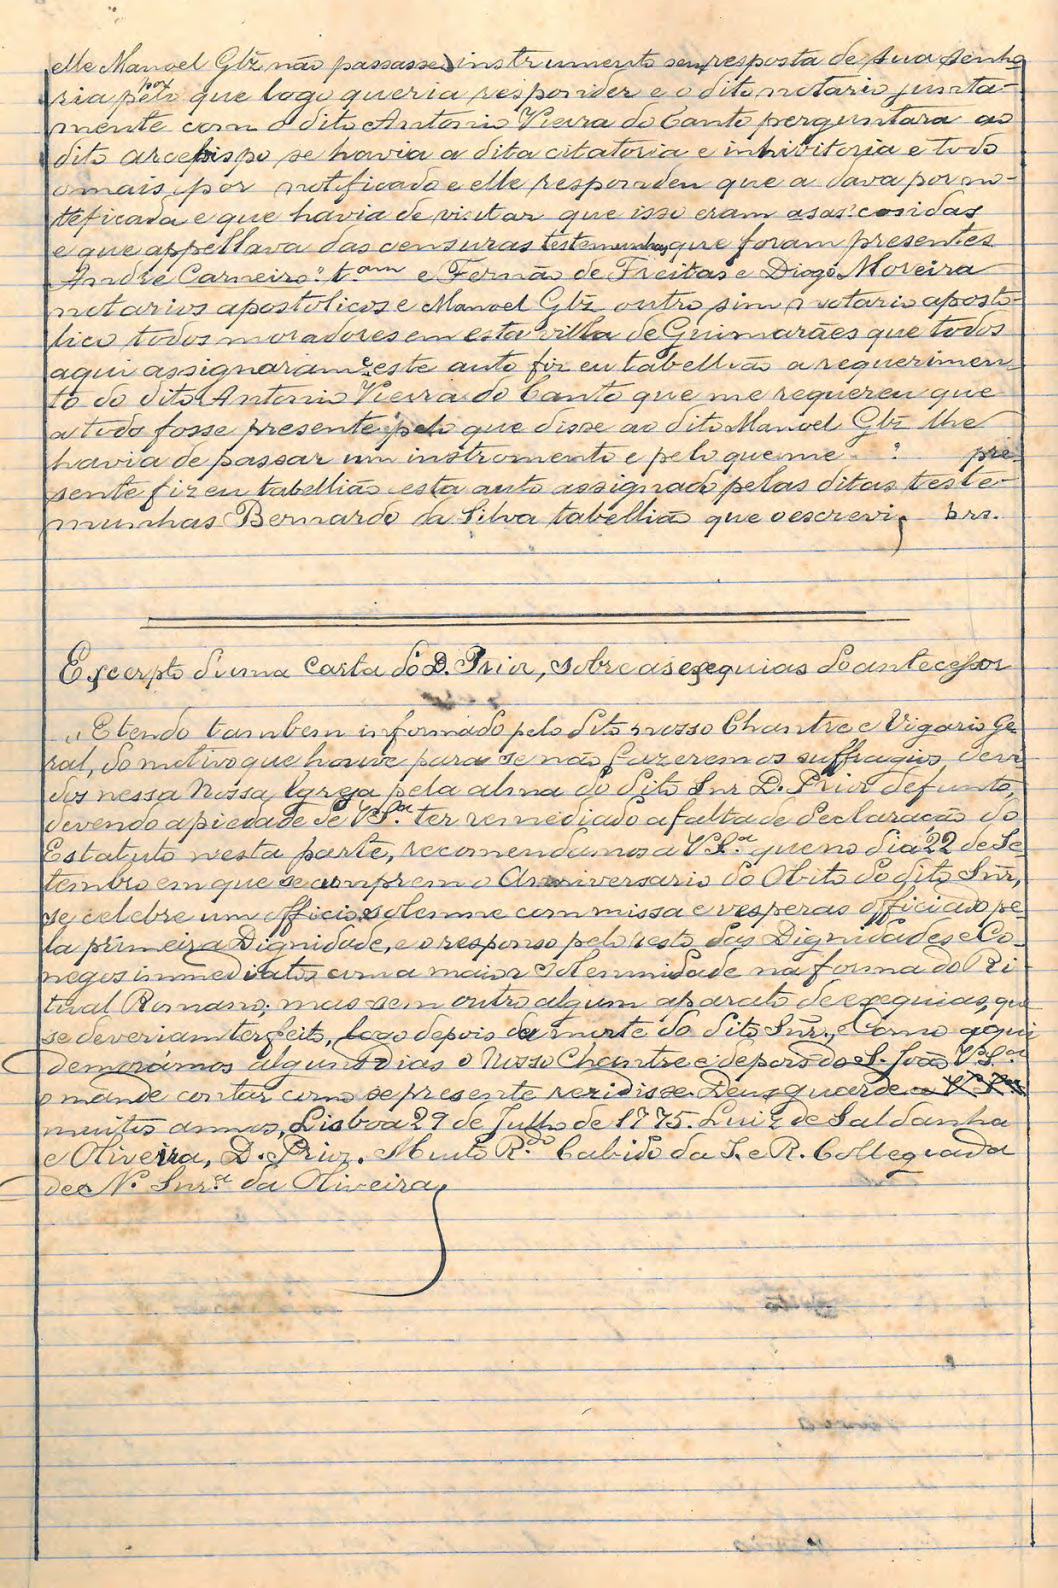 elle Manoel Glz não passasse instrumento sem resposta de sua senho
ria pelo por que logo queria responder e o dito notario junta-
mente com o dito Antonio Vieira do Canto perguntara ao
dito arcebispo se havia a dita citatoria e inhibitoria e todo
o mais por notificado e elle respondeu que a dava por no-
teficada e que havia de visitar que isso eram asas cosidas
e que appellava das censuras testemunhas que foram presentes
André Carneiro t.am e Fernão de Freitas e Diogo Moreira
notarios apostolicos e Manoel Glz outro sim notario aposto-
lico todos moradores em esta villa de Guimarães que todos
aqui assignaram e este auto fiz eu tabellião a requerimen-
to do dito Antonio Vieira do Canto que me requereu que
a todo fosse presente pelo que disse ao dito Manoel Glz lhe
havia de passar um instromento e pelo que me : pre-
sente fiz eu tabellião esta auto assignado pelas ditas teste-
munhas Bernardo da Silva tabellião que o escrevi, brs.
Excerpto d'uma carta do D. Prior, sobre as exequias do antecessor
"E tendo tambem informado pelo dito nosso Chantre e Vigario Ge-
ral, do motivo que houve para se não fazerem os suffragios devi
dos nessa Nossa Igreja pela alma do dito Snr D. Prior defunto,
devendo a piedade de V.S.as ter remediado a falta de declaração do
Estatuto nesta parte, recomendamos a V.S.as que no dia 22 de Se
tembro em que se cumprem o Anniversario do Obito do dito Snr,
se celebre um officio solemne com missa e vesperas officiado pe-
la primeira Dignidade, e o responso pelo resto das Dignidades e Co-
negos immediatos com a maior solemnidade na forma do Ri-
tual Romano; mas sem outro algum aparato de exequias, que
se deveriam ter feito, logo depois da morte do dito Snr., e Como aqui
demorámos alguns dias o Nosso Chantre e depois do S. João V.S.as
o mande contar como se presente rezidisse. Deus guarde a V. S.as
muitos annos, Lisboa 29 de Julho de 1775. Luiz de Saldanha
e Oliveira, D. Prior. Muito R.do Cabido da I. e R. Collegiada
de N. Snr.a da Oliveira,